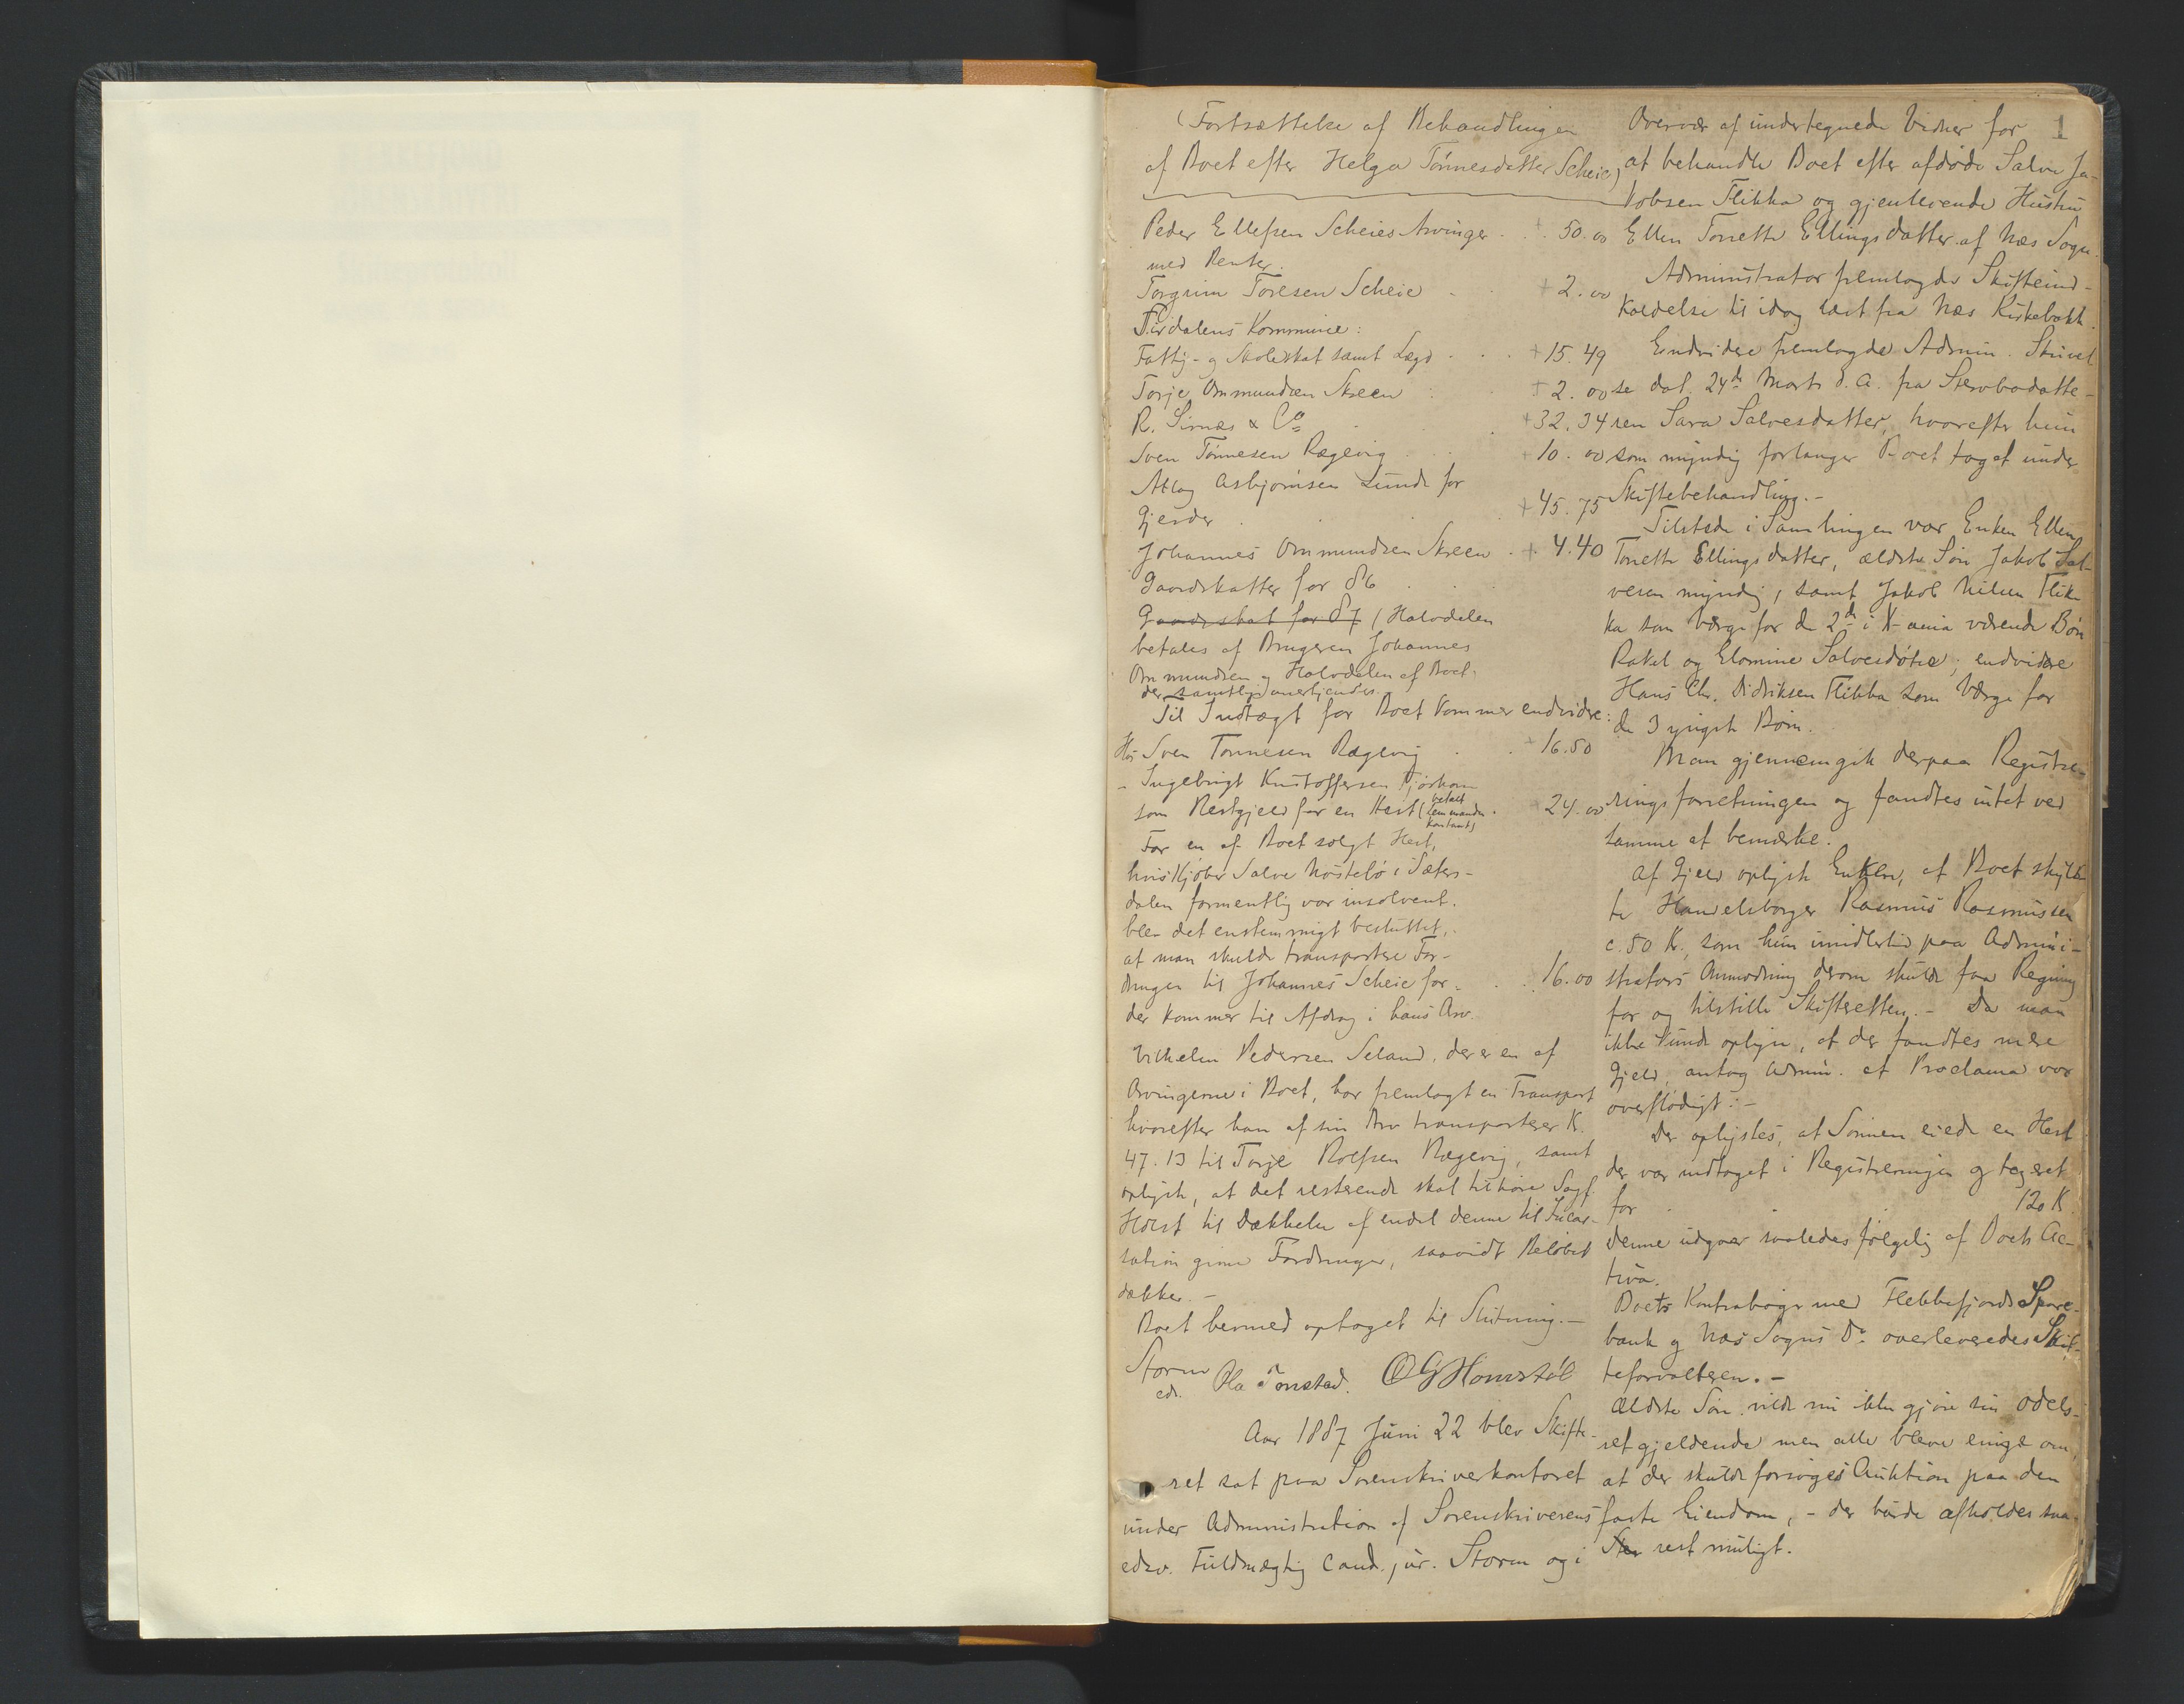 1
(Fortsættelse af Behandlingen
af Boet efter Helga Tónnesdatter Scheie)
Peder Ellefsen Scheies Arvinger . . 50.00
med Renter.
Torgrim Toresen Scheie . . + 2.00
Sirdalens Kommune:
Fattig- og Skoleskat samt Lægd . . . + 15.49
Torje Ommundsen Skreen . + 2.00
R. Sirnæs & Co . + 32.34
Sven Tönnesen Rægevig . . + 10.00
Atlag Asbjørnsen Lunde for
Gjerder . . . + 45.75
Johannes Ommundsen Skreen . + 4.40
Gaardskatter for 86 . . .
Gaardskat for 87 (Halvdelen
betales af Brugeren Johannes
Ommundsen og Halvdelen af Boet,
der samtlige anerkjendes.
Til Indtægt for Boet kommer endvidre:
Hos Sven Tönnesen Rægevig . . + 16.50
- Ingebrigt Kristoffersen Tjörhom
som Restgjæld for en Hest (betalt
Lensmanden
kontant) . + 24.00
For en af Boet solgt Hest,
hvis Kjøber Salve Nóstebó i Sæters-
dalen formentlig var insolvent,
blev det enstemmigt besluttet,
at man skulde transportere For-
dringen til Johannes Scheie for . . . 16.00
der kommer til Afdrag i hans Arv.
Vilhelm Pedersen Seland, der er en af
Arvingerne i Boet, har fremlagt en Transport
hvorefter han af sin Arv transporterer K.
47.13 til Torje Rolfsen Rægevig, samt
oplyste, at det resterende skal tilhöre Sagf.
Holst til Dækkelse af endel denne til Incas-
sation givne Fordringer, saavidt Belöbet
dækker. -
Boet hermed optaget til Slutning. -
Storm
eds. Ola Tonstad. O G Homstøl
Aar 1887 Juni 22 blev Skifte-
ret sat paa Sorenskriverkontoret
under Administration af Sorenskriverens
edsv. Fuldmægtig cand. jur. Storm og i
Overvær af undertegnede Vidner for
at behandle Boet efter afdøde Salve Ja-
kobsen Flikka og gjenlevende Hustru
Ellen Tonette Ellingsdatter af Næs Sogn.
Administrator fremlagde Skifteind-
kaldelse til idag læst fra Næs Kirkebakke.
Endvidere fremlagde Admin. Skrivel
se dat. 24de Marts d. A. fra Stervbodatte-
ren Sara Salvesdatter, hvorefter hun
som myndig forlanger Boet taget under
Skiftebehandling. -
Tilstede i Samlingen var Enken Ellen
Tonette Ellingsdatter, ældste Sön Jakob Sal-
vesen myndig, samt Jakob Nilsen Flik-
ka som Værge for de 2de i K-ania værende Börn
Rakel og Elomine Salvesdötre; endvidere
Hans Chr. Didriksen Flikka som Værge for
de 3 yngste Börn.
Man gjennemgik derpaa Registre-
ringsforretningen og fandtes intet ved
samme at bemærke.
Af Gjeld oplyste Enken, at Boet skyld-
te Handelsborger Rasmus Rasmussen
c. 50 Kr., som hun imidlertid paa Admini-
strators Anmodning derom skulde faa Regning
for og tilstille Skifteretten. - Da man
ikke kunde oplyse, at der fandtes mere
Gjeld, antog Admin. at Proclama var
overflødigt. -
Der oplystes, at Sönnen eiede en Hest
der var indtaget i Registreringen og taxeret
for . . . 120 K.
denne udgaar saaledes følgelig af Boets Ac-
tiva.
Boets Kontrabøger med Flekkefjords Spare-
bank og Næs Sogns Do overleveredes Skif-
teforvalteren. -
Ældste Sön vilde nu ikke gjøre sin Odels-
ret gjeldende men alle bleve enige om,
at der skulde forsøges Auktion paa den
faste Eiendom, - der burde afholdes sna-
rest muligt.